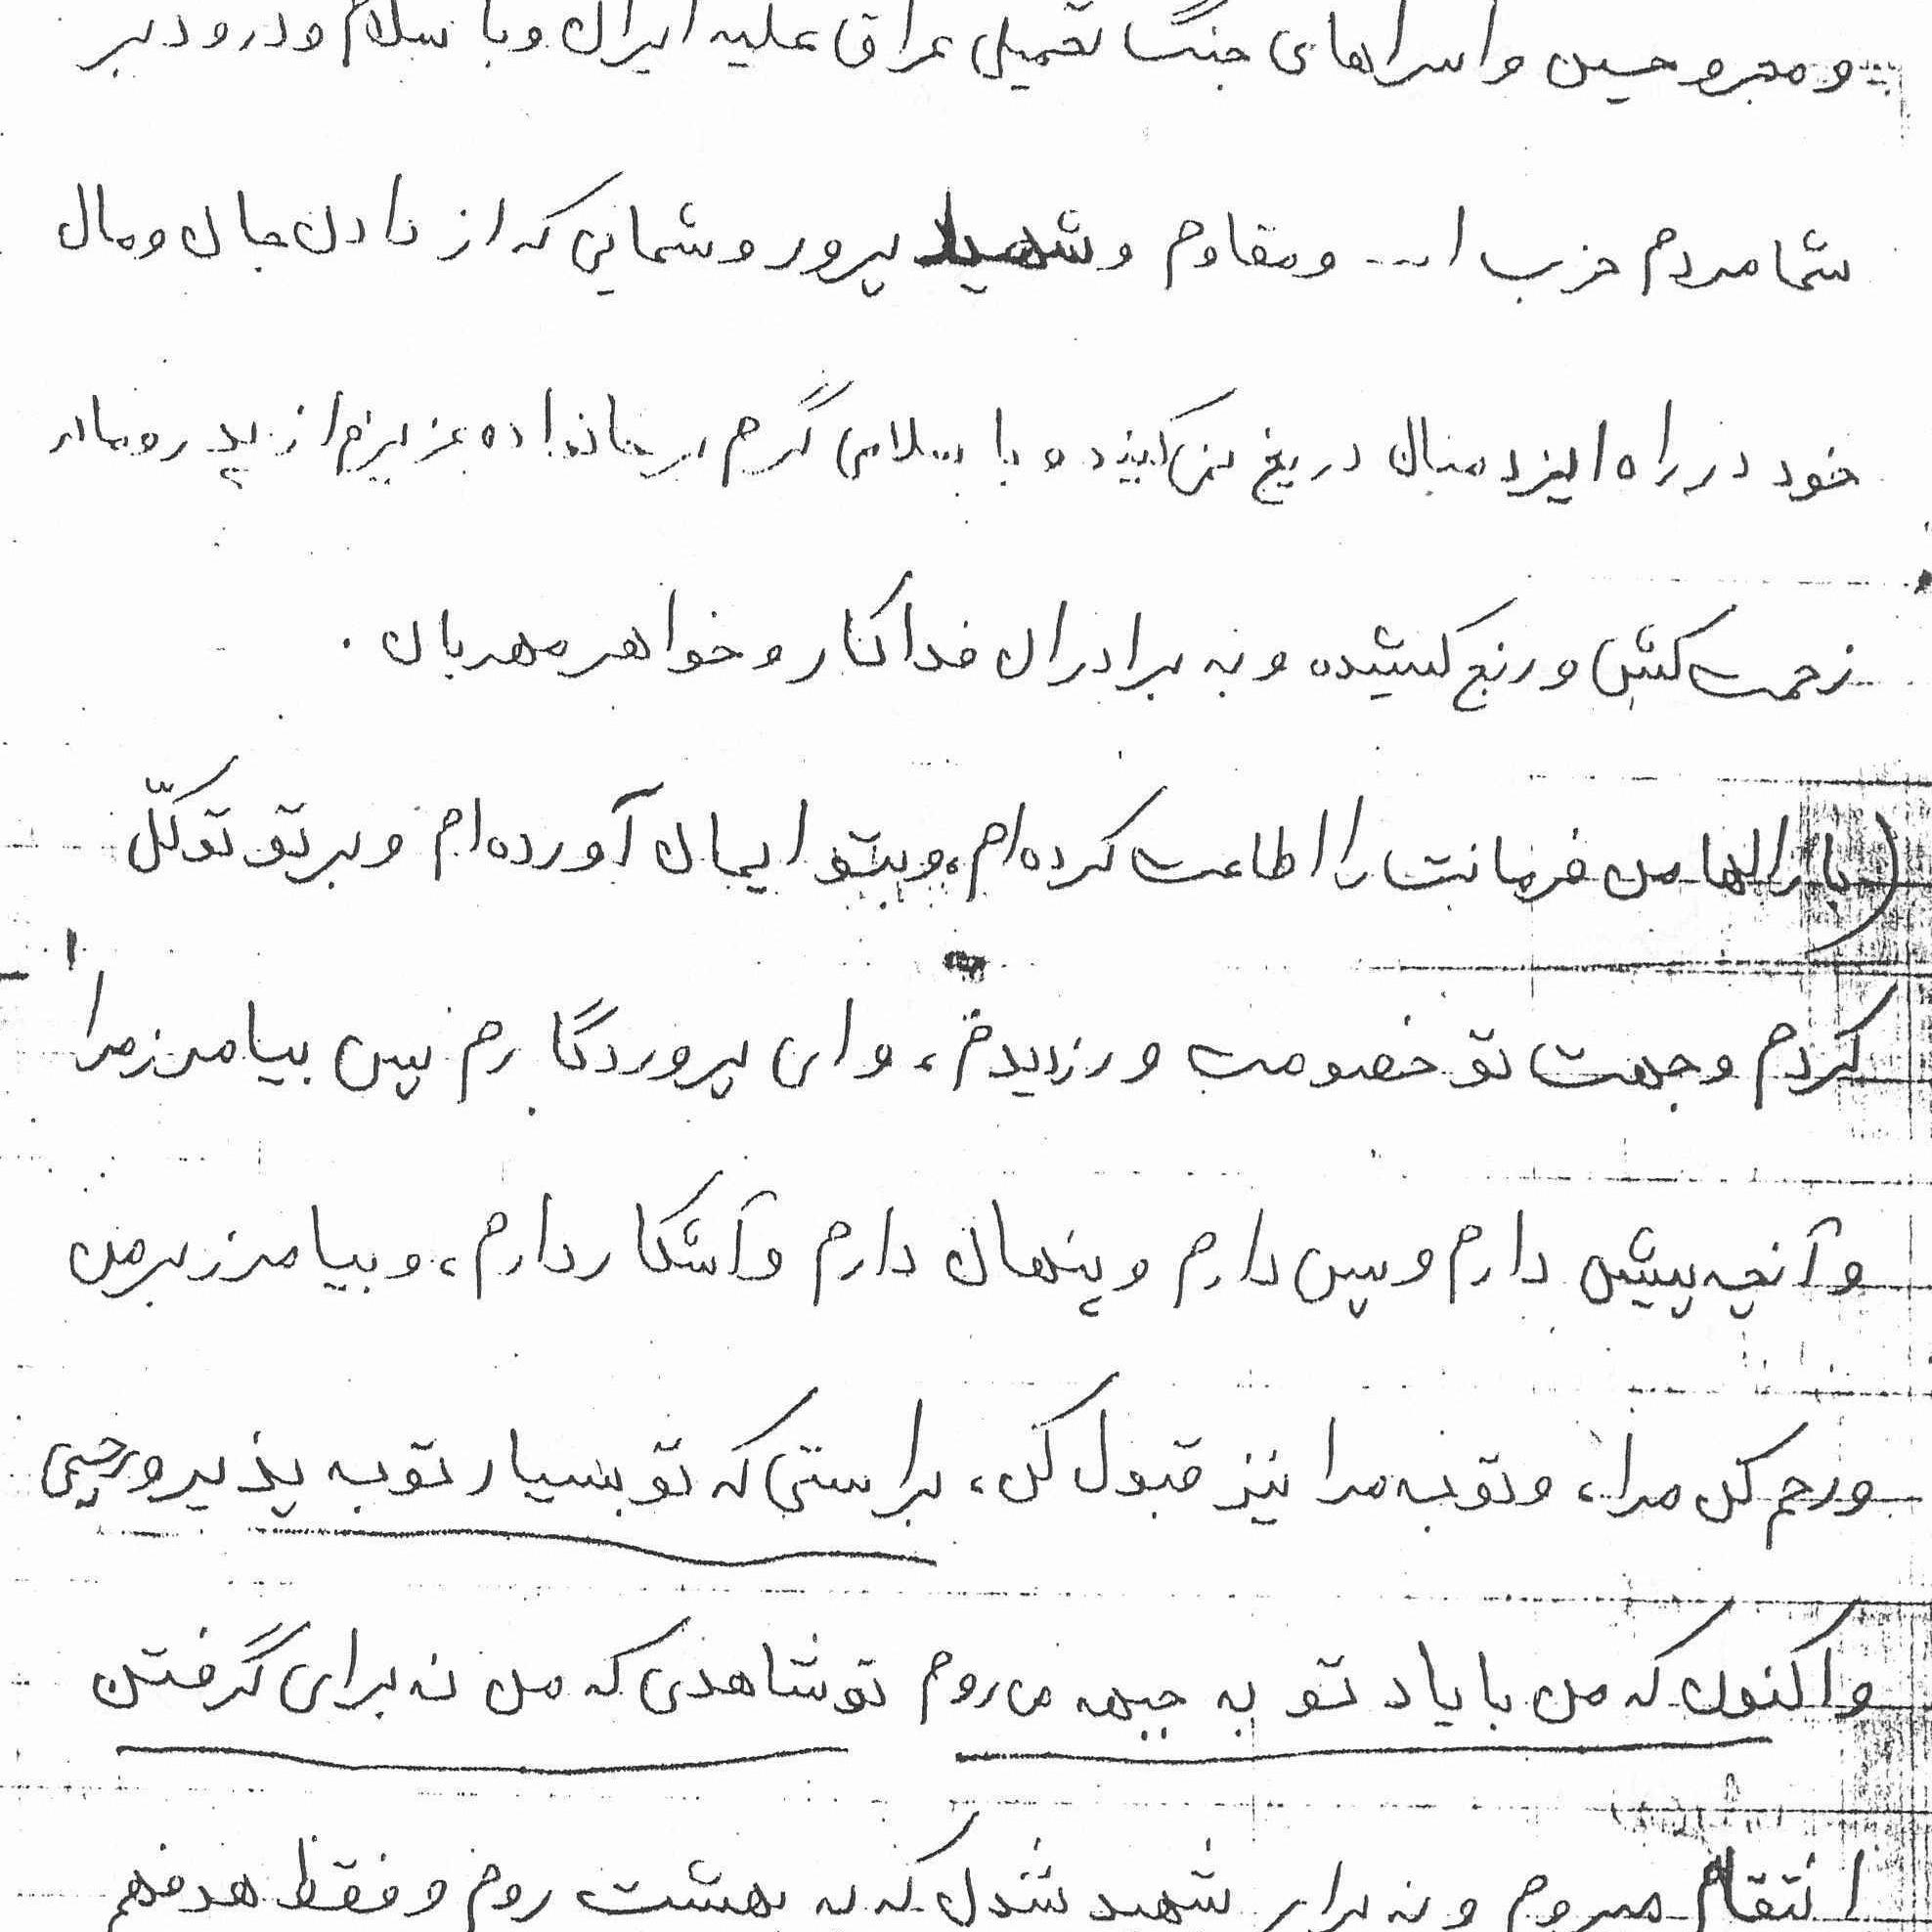 و مجروحین و اسراهای جنگ تحمیلی عراق علیه ایران و با سلام و درود بر
شما مردم حزب ا... و مقاوم و شهید پرور و شمایی که از دادن جان و مال
خود در راه ایزد منان دریغ نمی‌کنید و با سلامی گرم بر خانواده عزیزم از پدر و مادر
زحمت کش و رنج کشیده و به برادران فداکار و خواهر مهربان .
(بارالها من فرمانت را اطاعت کرده‌ام، و بتو ایمان آورده‌ام و بر تو توکّل
کردم و جهت تو خصومت ورزیدم، و ای پروردگارم پس بیامرز مرا
و آنچه پیش دارم و پس دارم و پنهان دارم و آشکار دارم، و بیامرز بر من
و رحم کن مرا، و توبه مرا نیز قبول کن، براستی که تو بسیار توبه پذیر و رحیمی
و اکنون که من با یاد تو به جبهه می‌روم تو شاهدی که من نه برای گرفتن
انتقام میروم و نه برای شهید شدن که به بهشت روم و فقط هدفم